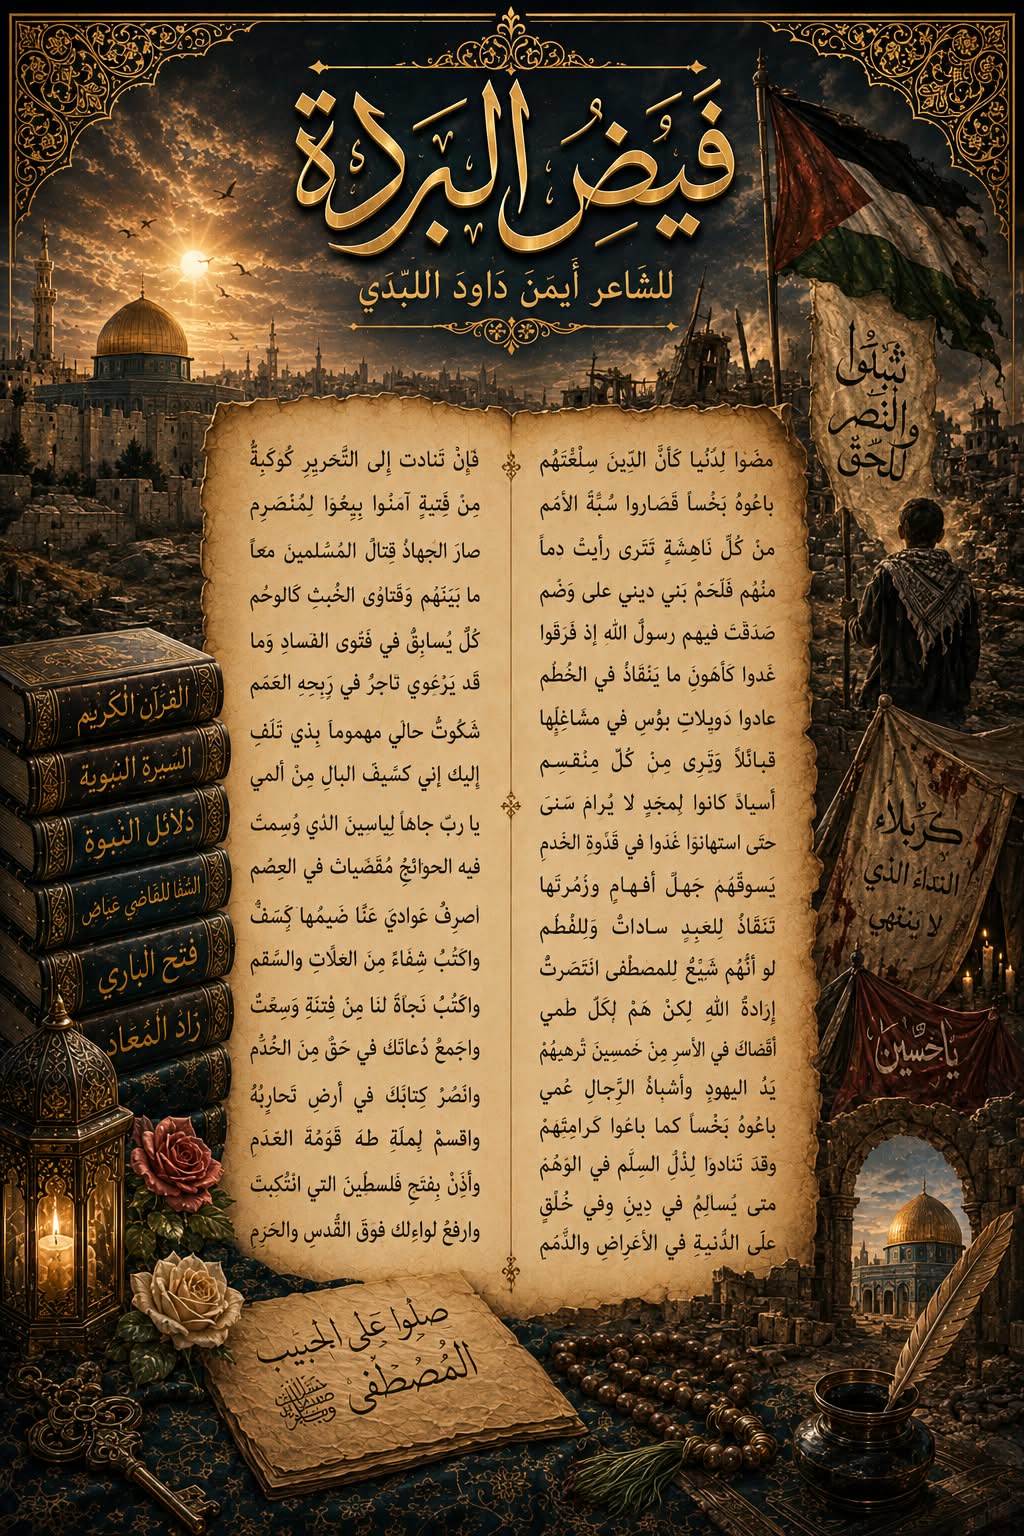 فَيْضُ البُردَة
للشَاعر أَيمَنَ دَاودَ اللبّدَي
ثبتوا
والنصر
للحق
مضَوا لِدُنُيا كَأنَّ الدِّينَ سِلْعْتَهُم
باعُوهُ بَخْساً فَصَاروا سُبَّةً الأمَم
منْ كُلِّ نَاهِشَةٍ تَتَرى رأيتُ دماً
منْهُم فَلَحَمْ بَني ديني على وَضُم
صَدَقْتَ فيهم رسولَّ اللهِ إذ فَرَقَوا
غَدوا كَأهَونِ ما يَنْقَاذُ في الخُطُم
عادوا دَويلاتِ بؤُسِ في مشَاغِلِها
قبائلاً وَتَرِى مِنْ كُلّ مِنْقسِم
أسيادً كَانوا لِمجَدٍ لا يُرامَ سَنىَ
حتَى استهانوَا غَدَوا في قَذَوةِ الخَدمِ
يَسوقُهُم جَهلُ أفهامٍ وزُمُرتَها
تَنَقَاذُ لِلعَبِدِ ساداتٌ وَلِلفُطَم
لو أنُّهُم شَيْعٌ للمصطفى انَتَصَرتْ
إرَادةُ اللهِ لِكنْ هَمْ لِكَلّ طمي
أقَضاكَ في الأسرِ مِنْ خَمسِينَ تُرهِيهُمْ
يَدُ اليهودِ وأشباهُ الرَّجالِ عُمي
باعُوهُ بَخْساً كما باعُوا كَرامِتَهِمْ
وقدَ تَنَادوَا لِذُلُ السِلَّم في الوُهُمْ
متى يُسالِمُ في دِينِ وفي خُلُقٍ
علَى الدَّنيةِ في الأعَراضِ والذَّمَمِ
فَإنْ تَنادت إلى التَّخرِيرِ كَوكَبِةُّ
مِنْ فَتيةٍ آمَنُوا بِيِعُوَا لِمُنْصَرِم
صارَ الجهاذُ قِتالُ المُسُلمينَ معَاً
ما بَيَنَهُم وَقَتاوُى الخُبثِ كَالوحُم
كُلَّ يُسابِقُ في فَتَوى الفَسادِ وَما
قَد يَرْعَوي تَاجرُ في رَبِحِهِ العَمَم
شَكُوتٌ حالي مهموماً بِذي تَلَفِ
إليك إني كسَيفَ البالِ مِنْ ألمي
يا ربّ جاهَاً لِياسِينَ الذي وُسِمتَ
فيه الحوَائجُ مُقَضَياتْ في العِصُم
اصرِفُ عَواديَ عَنَّا ضَيمُها كِسَفٌ
واكَتُبُ شِفَاءً مِنَ العَلاَّتِ والسَّقم
واكَتُبُ نَجاَةَ لنا مِنْ فِتنِةِ وَسِعْتٌ
واجَمعُ دُعاتَك في حَقٌ مِنَ الخُدُّم
وانَصُرْ كِتابَّكَ في أرضِ تَحاربُهُ
واقسمْ لِملَةِ طهَ قَوَمُةَ العَدَمِ
وأذَنْ بِفتَحِ فَلسطِينَ التي انْتُكِبتَ
وارفعُ لواءِلك فوقَ القُدسِ والحَرَمِ
القرآن الكريم
السيرة النبوية
دلائل النبوة
الشفا للقاضي عياض
فتح الباري
زاد المعاد
كربلاء
النداء الذي
لا ينتهي
ياحسين
صلوا على الحبيب
المصطفى